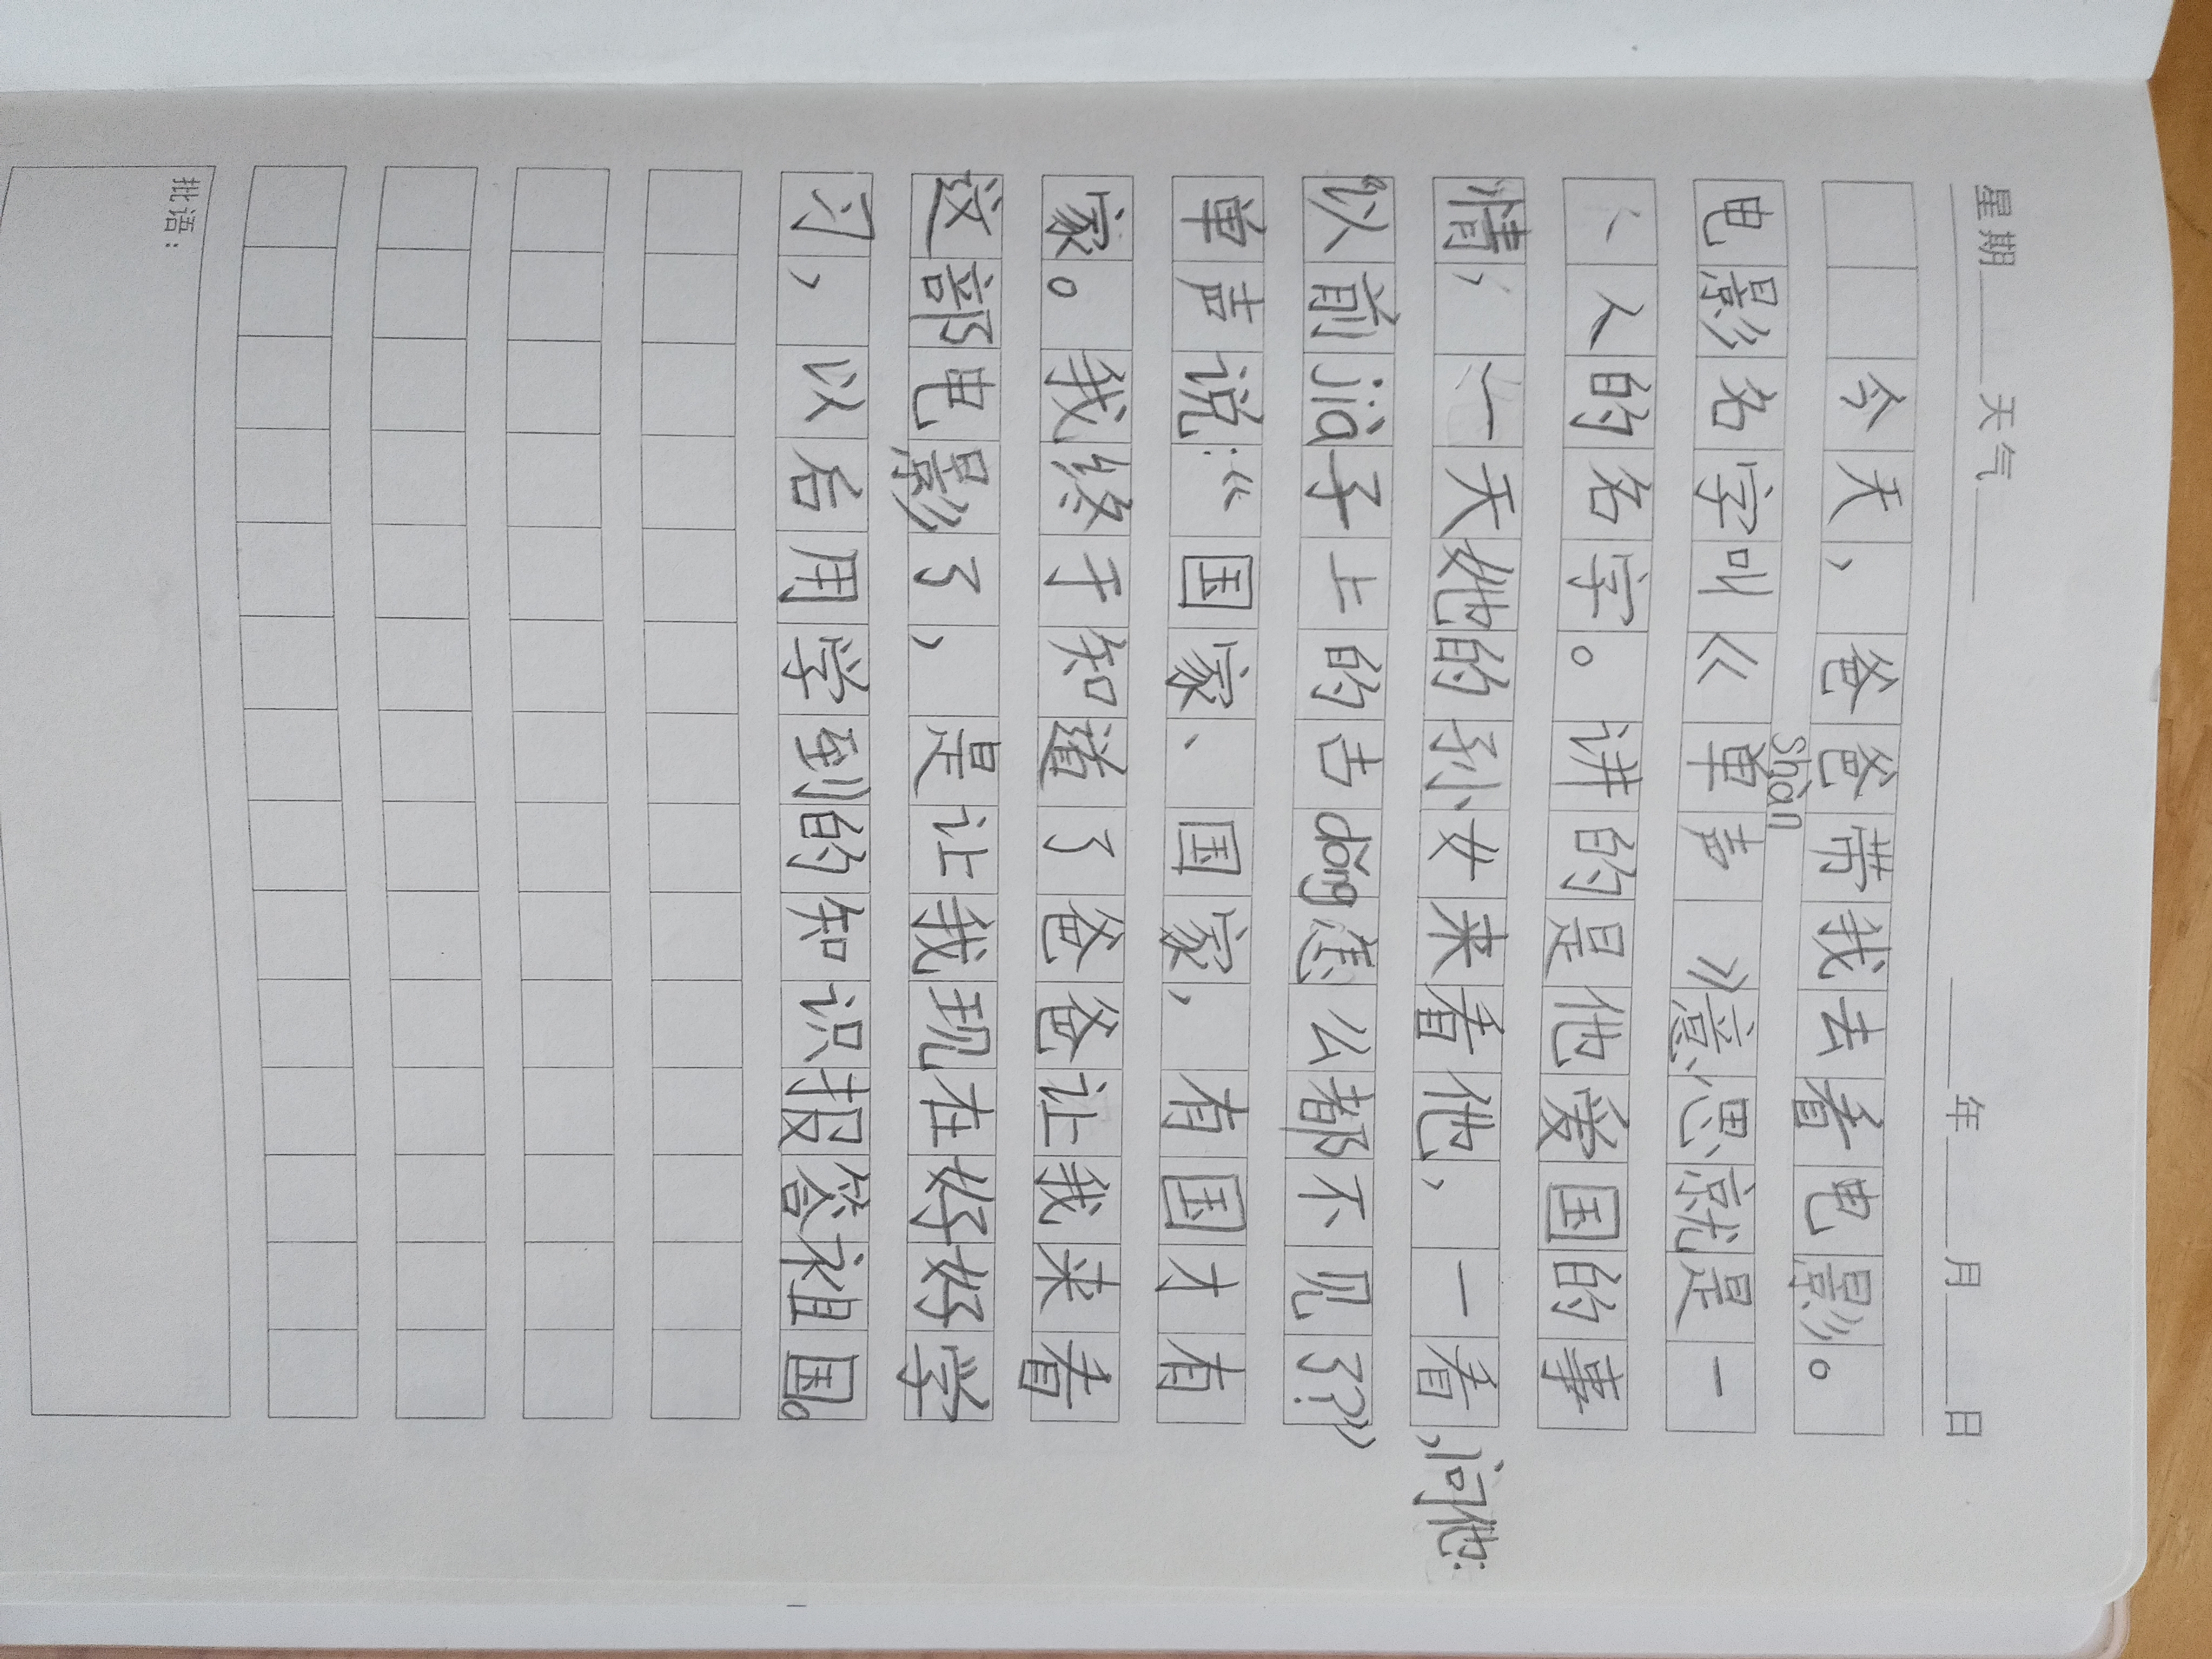 星期 天气 年 月 日
今天，爸爸带我去看电影。
shàn
电影名字叫《单声》意思就是一
个人的名字。讲的是他爱国的事
情，一天他的孙女来看他，一看，问他：
“以前jià子上的古dǒng怎么都不见了？”
单声说：“国家、国家，有国才有
家。我终于知道了爸爸让我来看
这部电影了，是让我现在好好学
习，以后用学到的知识报答祖国。
批语：